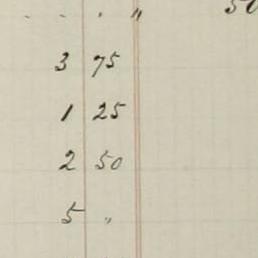 " 50
3 75
1 25
2 50
5 "